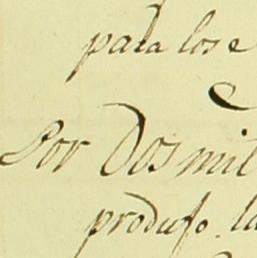 para los e
Por Dos mil
produjo. la